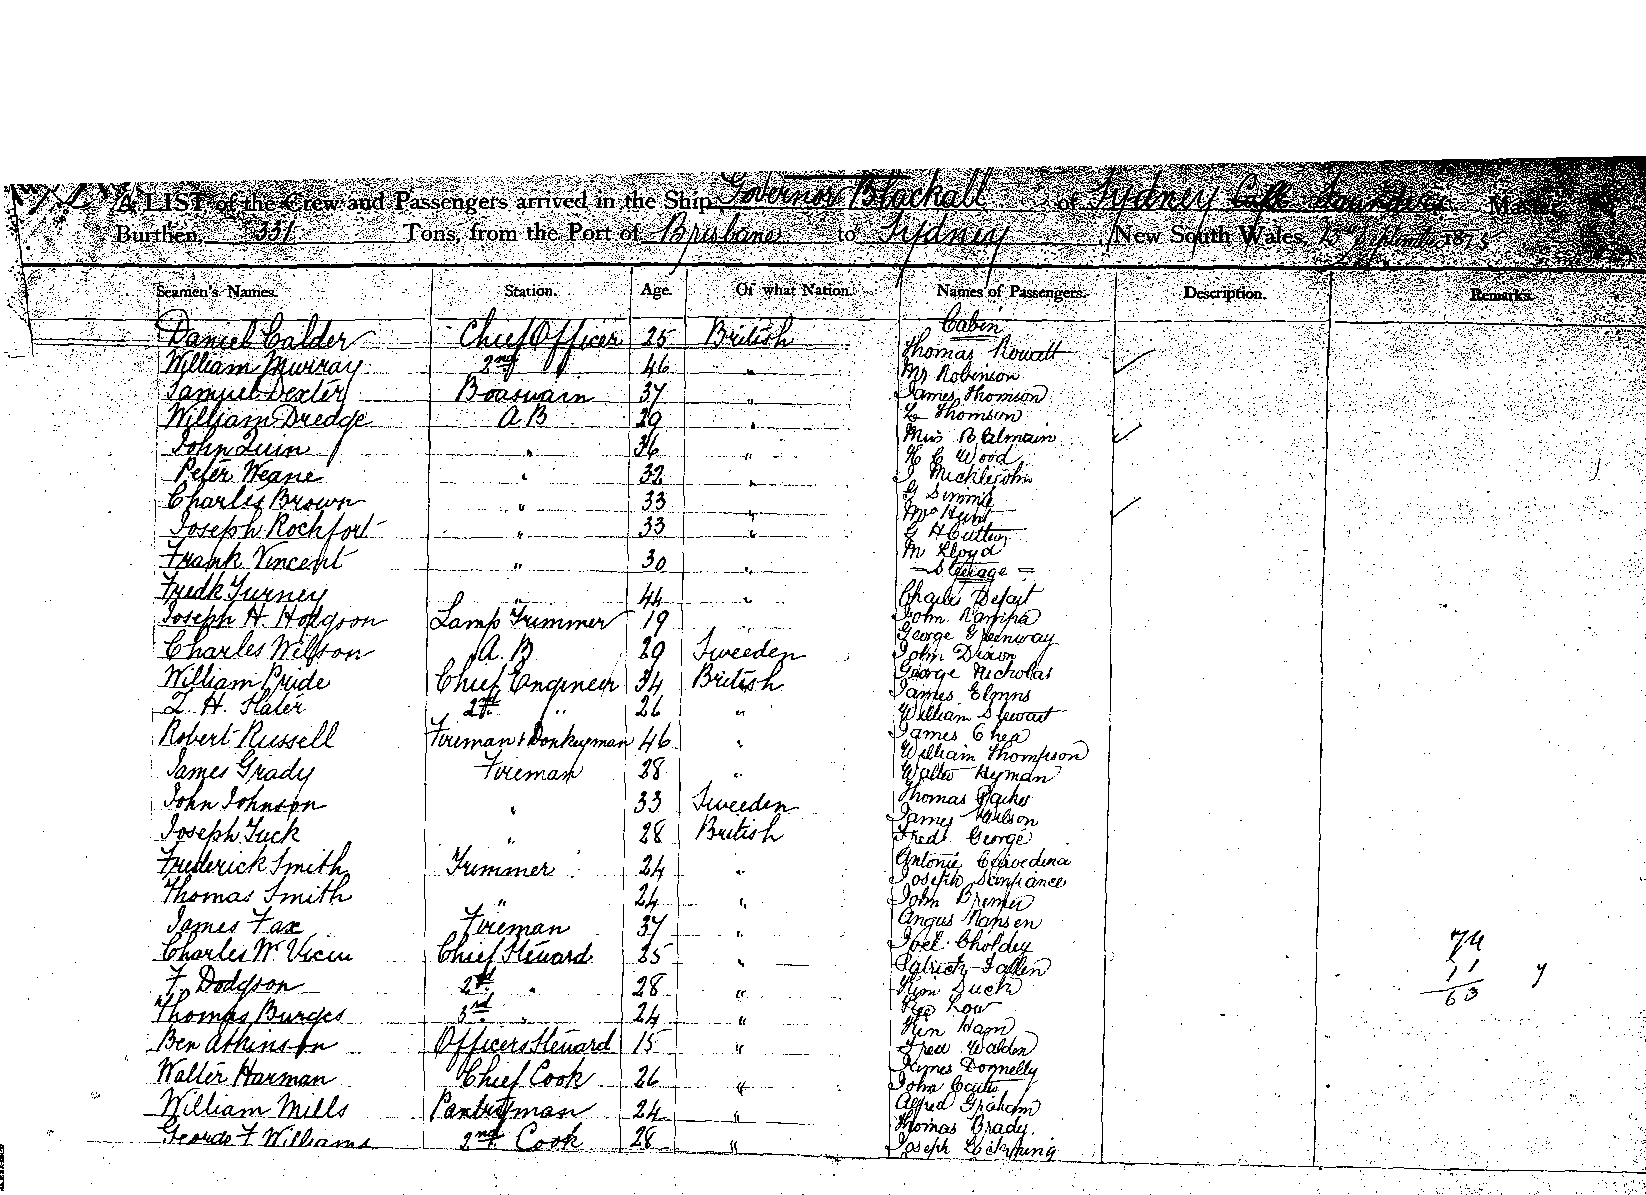 A LIST of the Crew and Passengers arrived in the Ship Governor Blackall of Sydney Capt Saunders Master
Burthen, 331 Tons, from the Port of Brisbane to Sydney, New South Wales, 1873
Seamen's Names. Station. Age. Of what Nation. Names of Passengers. Description. Remarks.
Daniel Calder Chief Officer 25 British
William Murray 2nd " 46 "
Samuel Dexter Boaswain 37 "
William Dredge A B 29 "
John Quin " 36 "
Peter Weane " 32 "
Charles Brown " 33 "
Joseph Rochfort " 33 "
Frank Vincent " 30 "
Fredk Turney " 44 "
Joseph H. Hodgson Lamp Trimmer 19
Charles Wilson A. B 29 Sweeden
William Pride Chief Engineer 34 British
H. Slater 2nd " 26 "
Robert Russell Fireman & Donkeyman 46 "
James Grady Fireman 28 "
John Johnson " 33 Sweeden
Joseph Tuck " 28 British
Frederick Smith Trimmer 24 "
Thomas Smith " 24 "
James Fax Fireman 37 "
Charles Mc Vicin Chief Steward 25 "
F. Dodgson 2nd " 28 "
Thomas Burges 3rd " 24 "
Ben Atkinson Officers Steward 15 "
Walter Harman Chief Cook 26 "
William Mills Pantryman 24 "
George F Williams 2nd Cook 28 "
Cabin
Thomas Rowatt
Mr Robinson
James Thomson
L Thomson
Miss Balmain
H C Wood
J Micklejohn
G Simmie
Mrs Hunt
G H Cutten
M Lloyd
Steerage
Charles Defast
John Rampa
George Greenway
John Dixon
George Nicholas
James Elmns
William Stewart
James Chea
William Thompson
Walter Hyman
Thomas Parker
James Carlson
Fred George
Antonie Cervedina
Joseph
John Bremer
Angus Hansen
Joel Choldey
Patrick Fallen
Kim Duck
Low
Kin Ham
Fred Walden
James Donnelly
John Coutts
Alfred Graham
Thomas Brady
Joseph
74
11
63